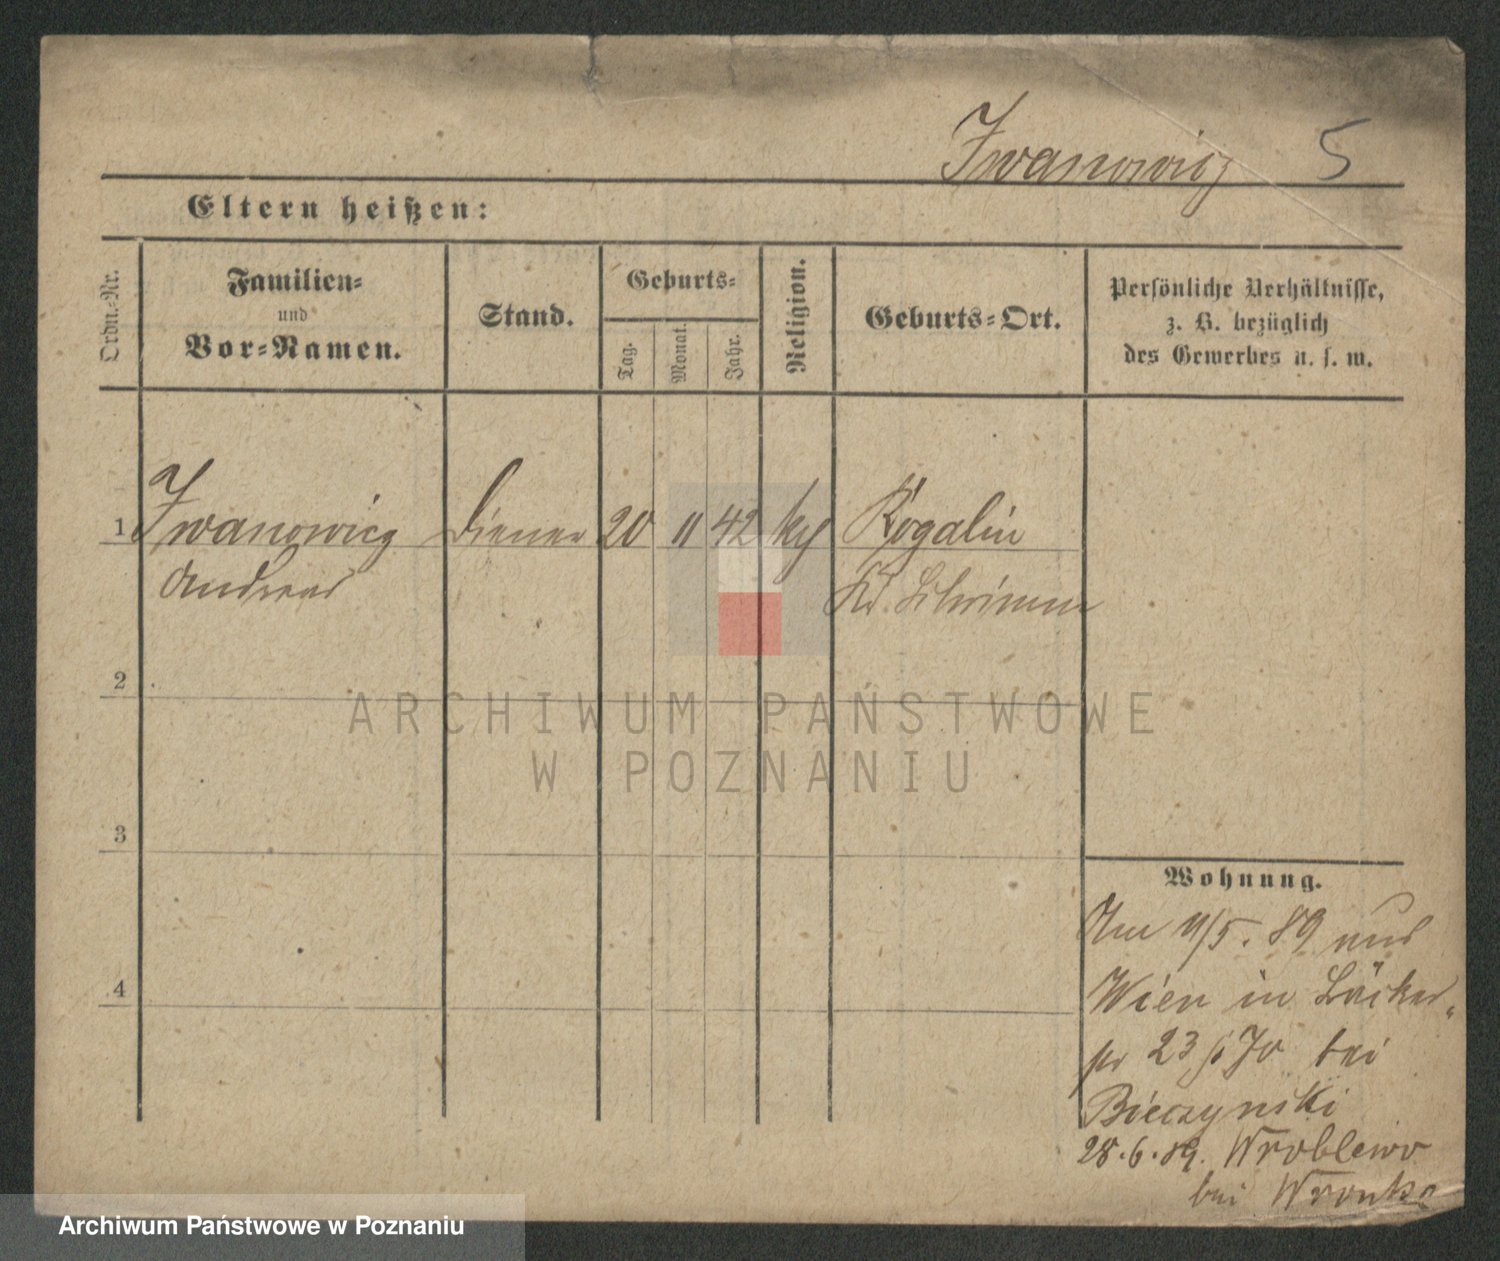 Iwanowicz 5
Eltern heißen:
Ordn.-Nr.
Familien-
und
Vor-Namen.
Stand.
Geburts-
Tag.
Monat.
Jahr.
Religion.
Geburts-Ort.
Persönliche Verhältnisse,
z. B. bezüglich
des Gewerbes u. s. w.
1 Iwanowicz Diener 20 11 42 kth Rogalin
Andreas Kr. Schrimm
2
3
4
Wohnung.
Am 9/5. 89 aus
Wien in Bäcker-
str 23 bei
Bieczynski
28.6.89. Wroblewo
bei Wronke
ARCHIWUM PAŃSTWOWE
W POZNANIU
Archiwum Państwowe w Poznaniu